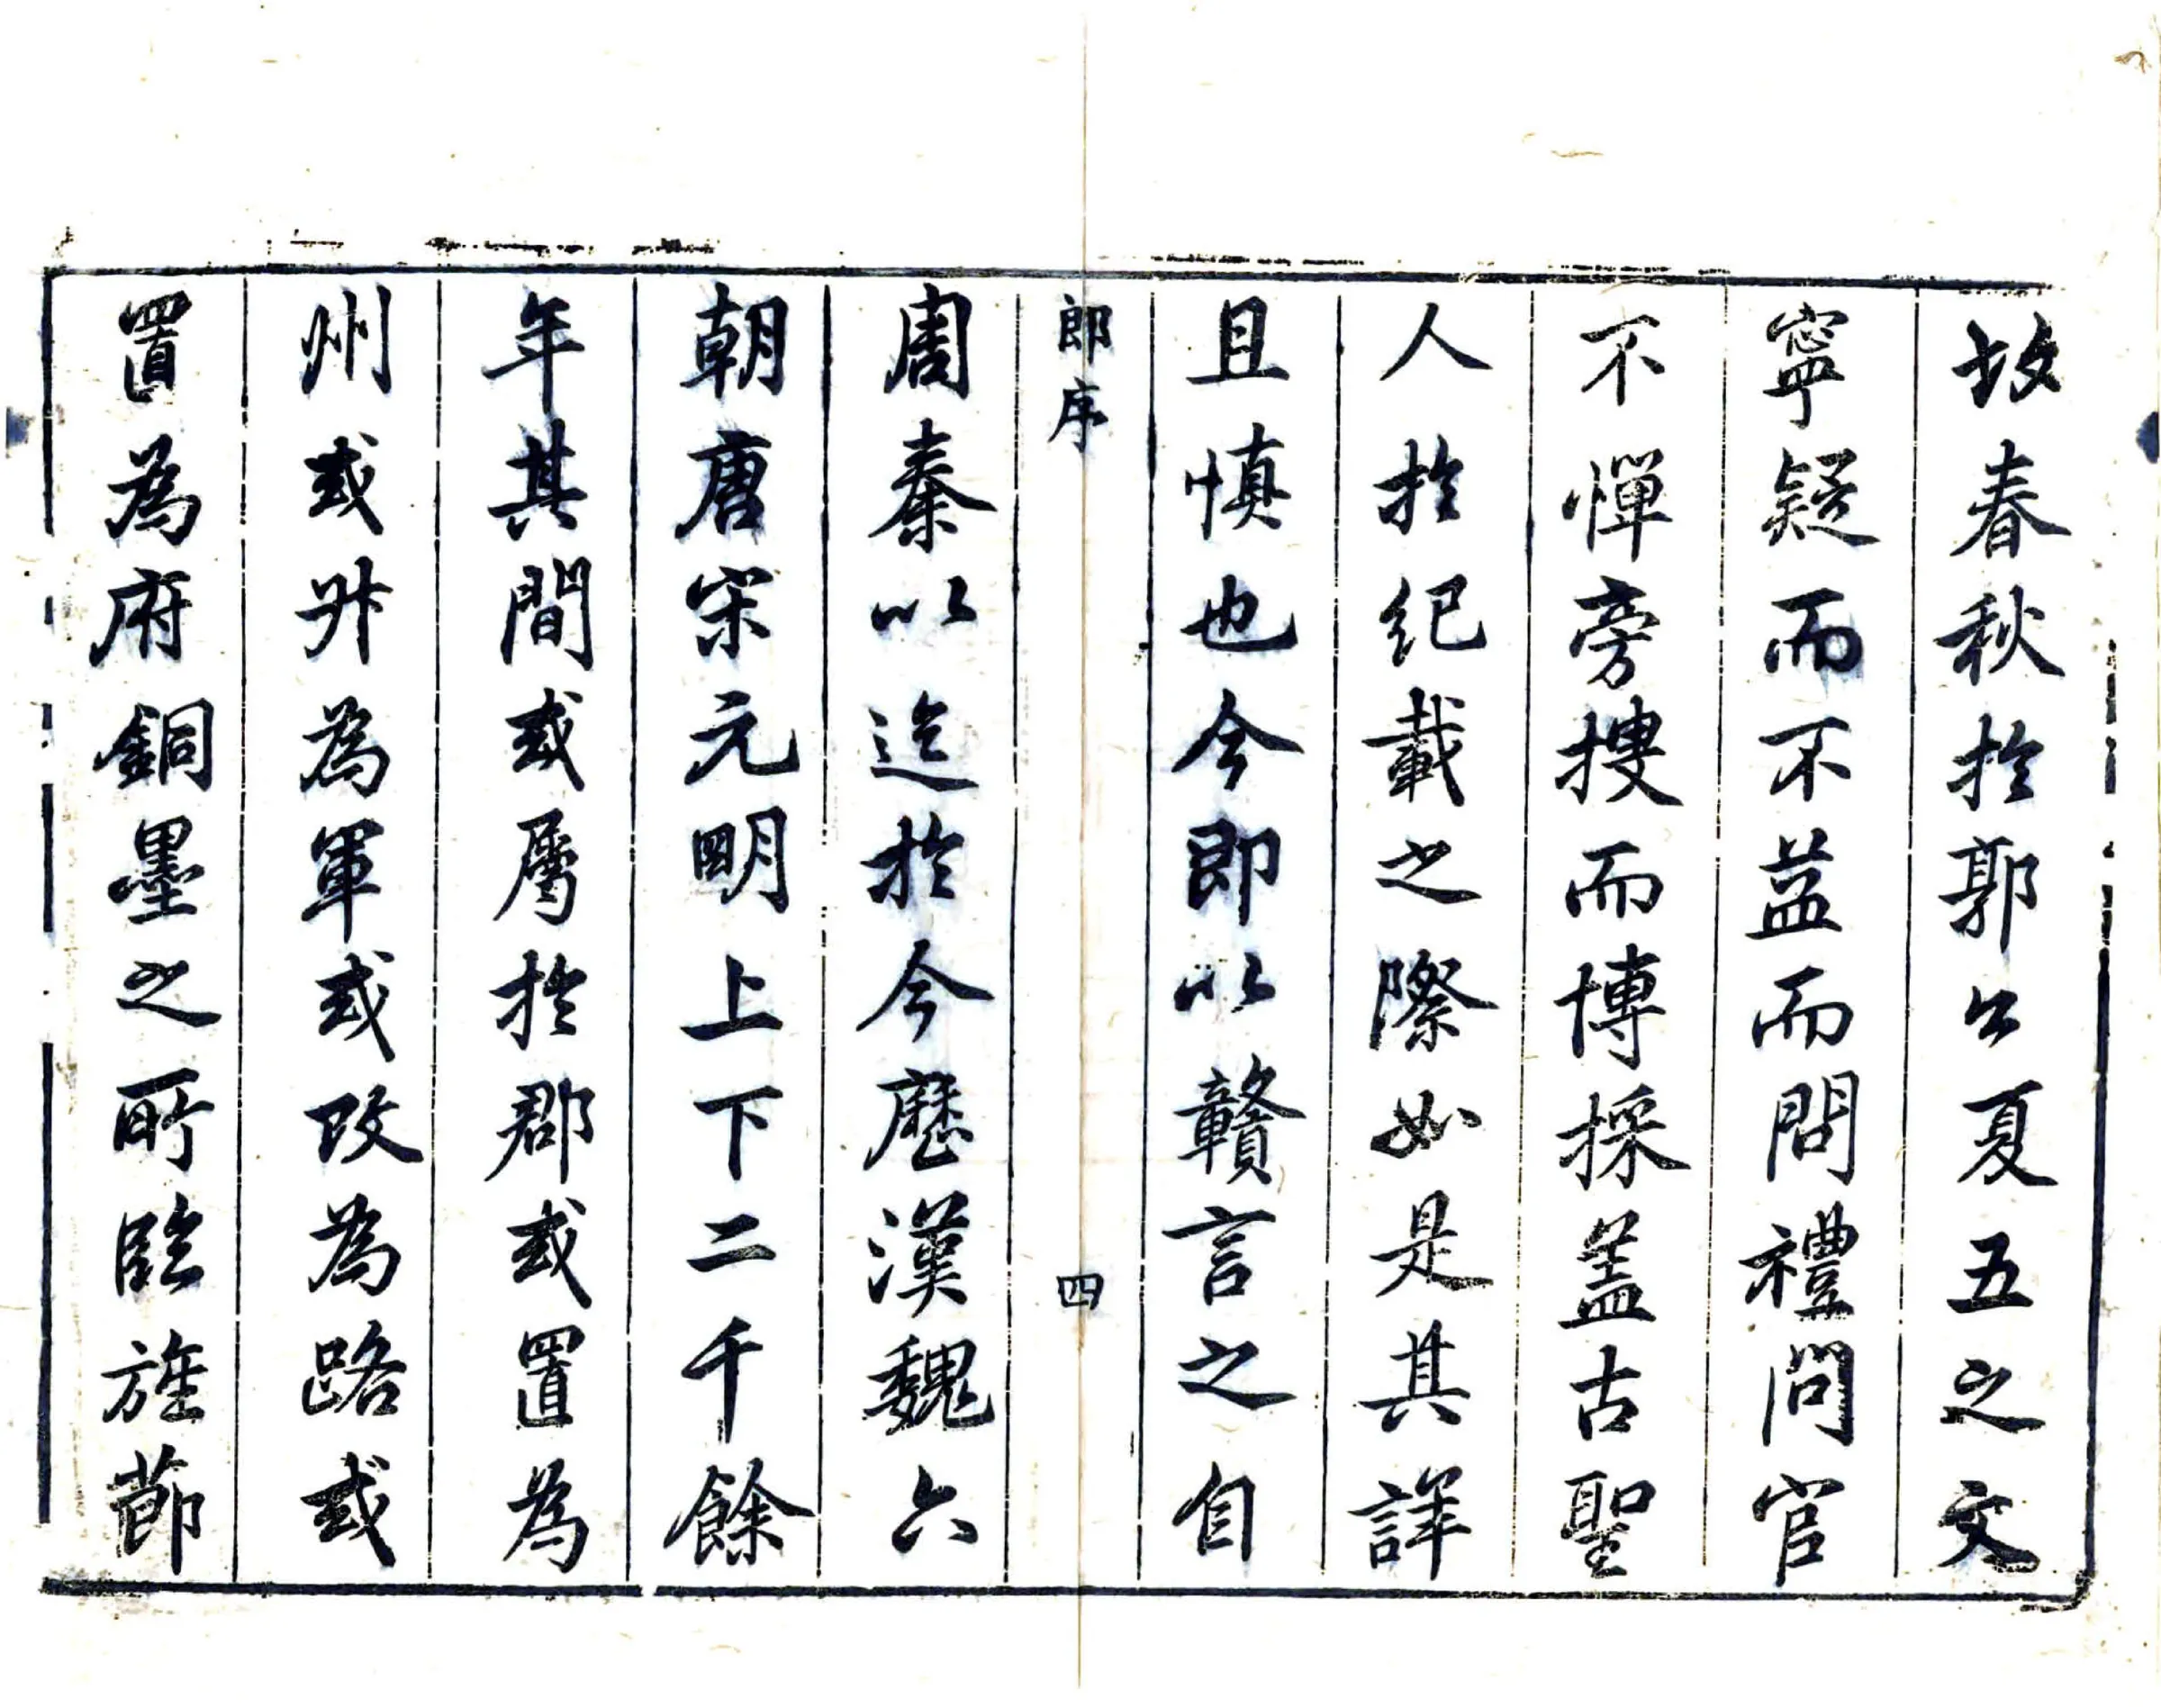 故春秋於郭公夏五之文
寧疑而不益而問禮問官
不憚旁搜而博採蓋古聖
人於紀載之際如是其詳
且慎也今即以贛言之自
郎序
四
周秦以迄於今歷漢魏六
朝唐宋元明上下二千餘
年其間或屬於郡或置為
州或升為軍或改為路或
置為府銅墨之所臨旌節